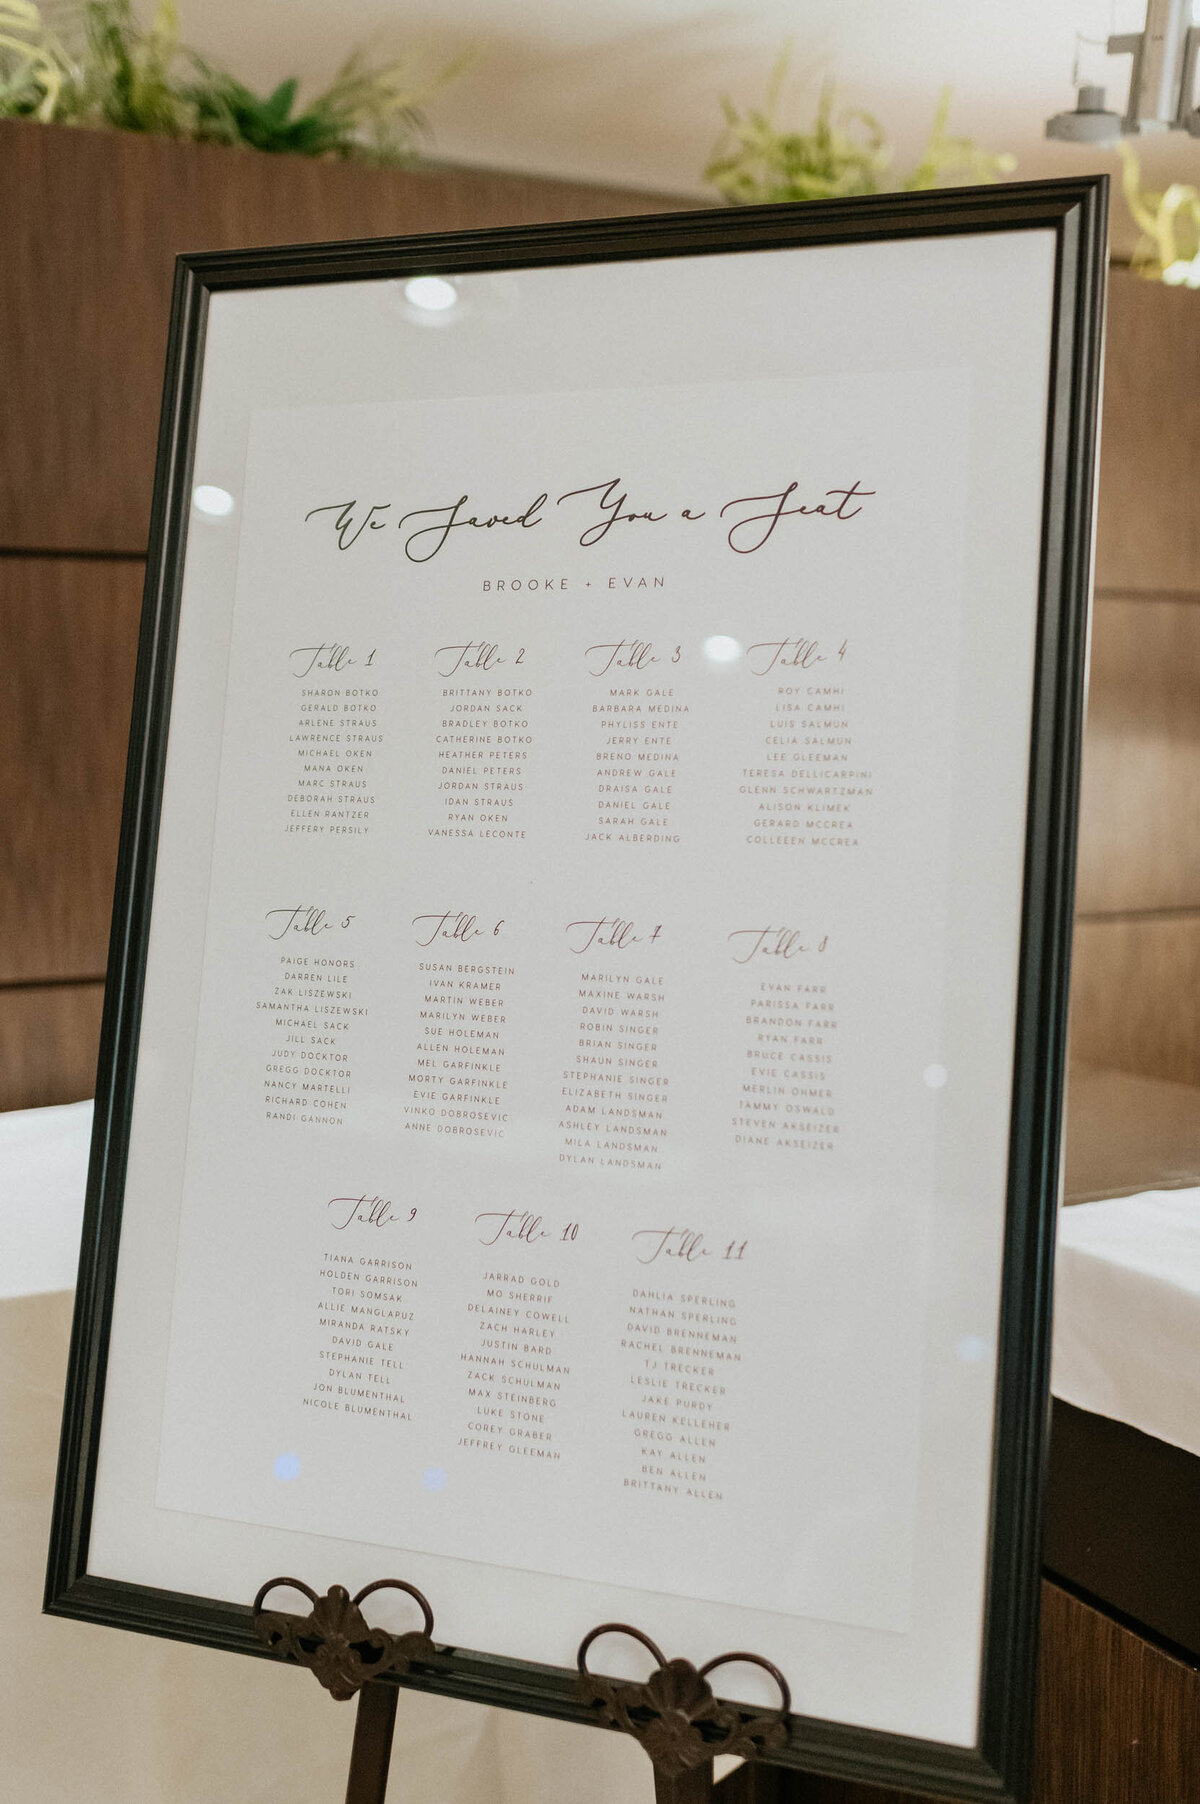 We Saved You a Seat
BROOKE + EVAN
Table 1
SHARON BOTKO
GERALD BOTKO
ARLENE STRAUS
LAWRENCE STRAUS
MICHAEL OKEN
MANA OKEN
MARC STRAUS
DEBORAH STRAUS
ELLEN RANTZER
JEFFERY PERSILY
Table 2
BRITTANY BOTKO
JORDAN SACK
BRADLEY BOTKO
CATHERINE BOTKO
HEATHER PETERS
DANIEL PETERS
JORDAN STRAUS
IDAN STRAUS
RYAN OKEN
VANESSA LECONTE
Table 3
MARK GALE
BARBARA MEDINA
PHYLISS ENTE
JERRY ENTE
BRENO MEDINA
ANDREW GALE
DRAISA GALE
DANIEL GALE
SARAH GALE
JACK ALBERDING
Table 4
ROY CAMHI
LISA CAMHI
LUIS SALMUN
CELIA SALMUN
LEE GLEEMAN
TERESA DELLICARPINI
GLENN SCHWARTZMAN
ALISON KLIMEK
GERARD MCCREA
COLLEEEN MCCREA
Table 5
PAIGE HONORS
DARREN LILE
ZAK LISZEWSKI
SAMANTHA LISZEWSKI
MICHAEL SACK
JILL SACK
JUDY DOCKTOR
GREGG DOCKTOR
NANCY MARTELLI
RICHARD COHEN
RANDI GANNON
Table 6
SUSAN BERGSTEIN
IVAN KRAMER
MARTIN WEBER
MARILYN WEBER
SUE HOLEMAN
ALLEN HOLEMAN
MEL GARFINKLE
MORTY GARFINKLE
EVIE GARFINKLE
VINKO DOBROSEVIC
ANNE DOBROSEVIC
Table 7
MARILYN GALE
MAXINE WARSH
DAVID WARSH
ROBIN SINGER
BRIAN SINGER
SHAUN SINGER
STEPHANIE SINGER
ELIZABETH SINGER
ADAM LANDSMAN
ASHLEY LANDSMAN
MILA LANDSMAN
DYLAN LANDSMAN
Table 8
EVAN FARR
PARISSA FARR
BRANDON FARR
RYAN FARR
BRUCE CASSIS
EVIE CASSIS
MERLIN OHMER
TAMMY OSWALD
STEVEN AKSEIZER
DIANE AKSEIZER
Table 9
TIANA GARRISON
HOLDEN GARRISON
TORI SOMSAK
ALLIE MANGLAPUZ
MIRANDA RATSKY
DAVID GALE
STEPHANIE TELL
DYLAN TELL
JON BLUMENTHAL
NICOLE BLUMENTHAL
Table 10
JARRAD GOLD
MO SHERRIF
DELAINEY COWELL
ZACH HARLEY
JUSTIN BARD
HANNAH SCHULMAN
ZACK SCHULMAN
MAX STEINBERG
LUKE STONE
COREY GRABER
JEFFREY GLEEMAN
Table 11
DAHLIA SPERLING
NATHAN SPERLING
DAVID BRENNEMAN
RACHEL BRENNEMAN
TJ TRECKER
LESLIE TRECKER
JAKE PURDY
LAUREN KELLEHER
GREGG ALLEN
KAY ALLEN
BEN ALLEN
BRITTANY ALLEN